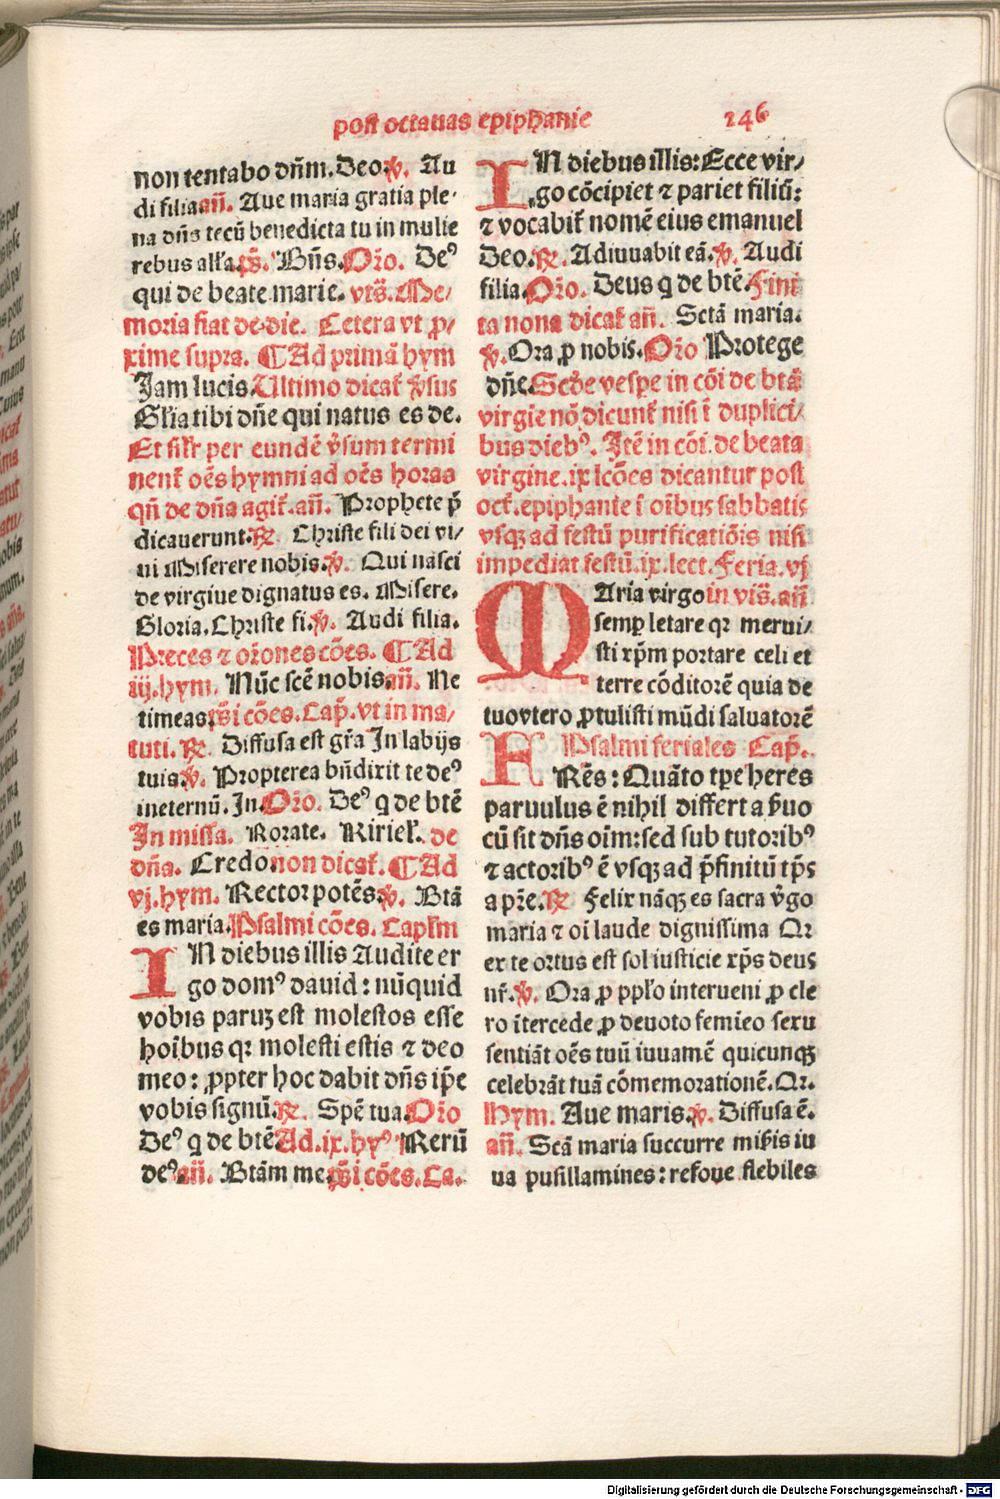 post octauas epiphanie 146
non tentabo dñm. Deo. ℣. Au
di filia añ. Aue maria gratia ple-
na dñs tecū benedicta tu in mulie
rebus alľa. p̄s. Bñs. Oŕo. Deꝰ
qui de beate marie. vĩs. Me/
moria fiat de die. Cetera vt ꝓ/
xime supra. ¶ Ad primā hym
Jam lucis. Ultimo dicat̃ v̓sus
Gľia tibi dñe qui natus es de.
Et silr̃ per eundē v̓sum termi
nent̃ oēs hymni ad oēs horas
qñ de dña agit̃. añ. Prophete p̄
dicauerunt. ℞. Christe fili dei vi/
ui Miserere nobis. ℣. Qui nasci
de virgiue dignatus es. Misere.
Gloria. Christe fi. ℣. Audi filia.
Preces ⁊ oŕones cōes. ¶ Ad
iij. hym. Nūc scē nobis. añ. Ne
timeas. p̄si cōes. Cap̃. vt in ma/
tuti. ℞. Diffusa est gŕa In labijs
tuis. ℣. Propterea bñdixit te deꝰ
ineternū. In. Oŕo. Deꝰ q de btē
In missa. Rorate. Kiriel̃. de
dña. Credo non dicat̃. ¶ Ad
vj. hym. Rector potēs. ℣. Btā
es maria. Psalmi cōes. Capľm
IN diebus illis Audite er
go domꝰ dauid: nūquid
vobis paruꝫ est molestos esse
hoībus qꝛ molesti estis ⁊ deo
meo: ꝓpter hoc dabit dñs ip̄e
vobis signū. ℞. Spē tua. Oŕo
Deꝰ q de btē Ad. ix. hyꝰ Rerū
deꝰ añ. Btām me. p̄si cōes. Ca.
IN diebus illis: Ecce vir/
go cōcipiet ⁊ pariet filiū:
⁊ vocabit̃ nomē eius emanuel
Deo. ℞. Adiuuabit eā. ℣. Audi
filia. Oŕo. Deus q de btē. Fini
ta nona dicat̃ añ. Sctā maria.
℣. Ora ꝓ nobis. Oŕo Protege
dñe. Scďe vespe in cōi de btā
virgie nō dicunt̃ nisi ī duplici/
bus diebꝰ. Jtē in cōi. de beata
virgine. ix lcōes dicantur post
oct̃. epiphanie ī oībus sabbatis
vsqꝫ ad festū purificatiōis nisi
impediat festū. ix. lect. Feria. vj
MAria virgo in vīs. añ
semꝑ letare qꝛ merui/
sti xp̄m portare celi et
terre cōditorē quia de
tuo vtero ꝓtulisti mūdi saluatorē
Psalmi feriales Cap̃.
FRēs: Quāto tp̄e heres
paruulus ē nihil differt a ẜuo
cū sit dñs oīm: sed sub tutoribꝰ
⁊ actoribꝰ ē vsqꝫ ad p̄finitū tp̄s
a pŕe. ℞ Felix nāqꝫ es sacra v̓go
maria ⁊ oi laude dignissima Qꝛ
ex te ortus est sol iusticie xp̄s deus
nr̃. ℣. Ora ꝓ ppľo interueni ꝓ cle
ro ītercede ꝓ deuoto femieo sexu
sentiāt oēs tuū iuuamē quicunqꝫ
celebrāt tuā cōmemorationē. Qꝛ.
Hym. Aue maris. ℣. Diffusa ē.
añ. Scā maria succurre mis̃is iu
ua pusillamines: refoue flebiles
Digitalisierung gefördert durch die Deutsche Forschungsgemeinschaft - DFG